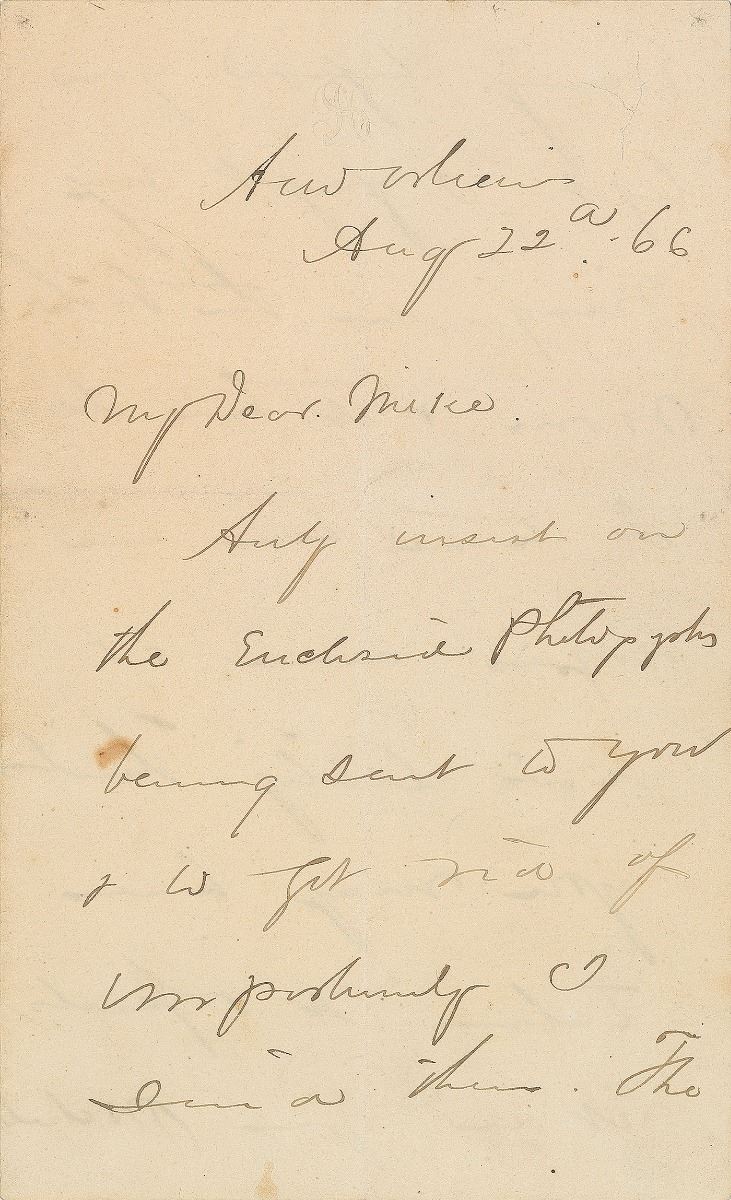 New Orleans
Aug 22d. 66
My Dear. Mike.
insist on
the Enclosed Photogphs
being sent to you
& to get rid of
importunity I
send them. The